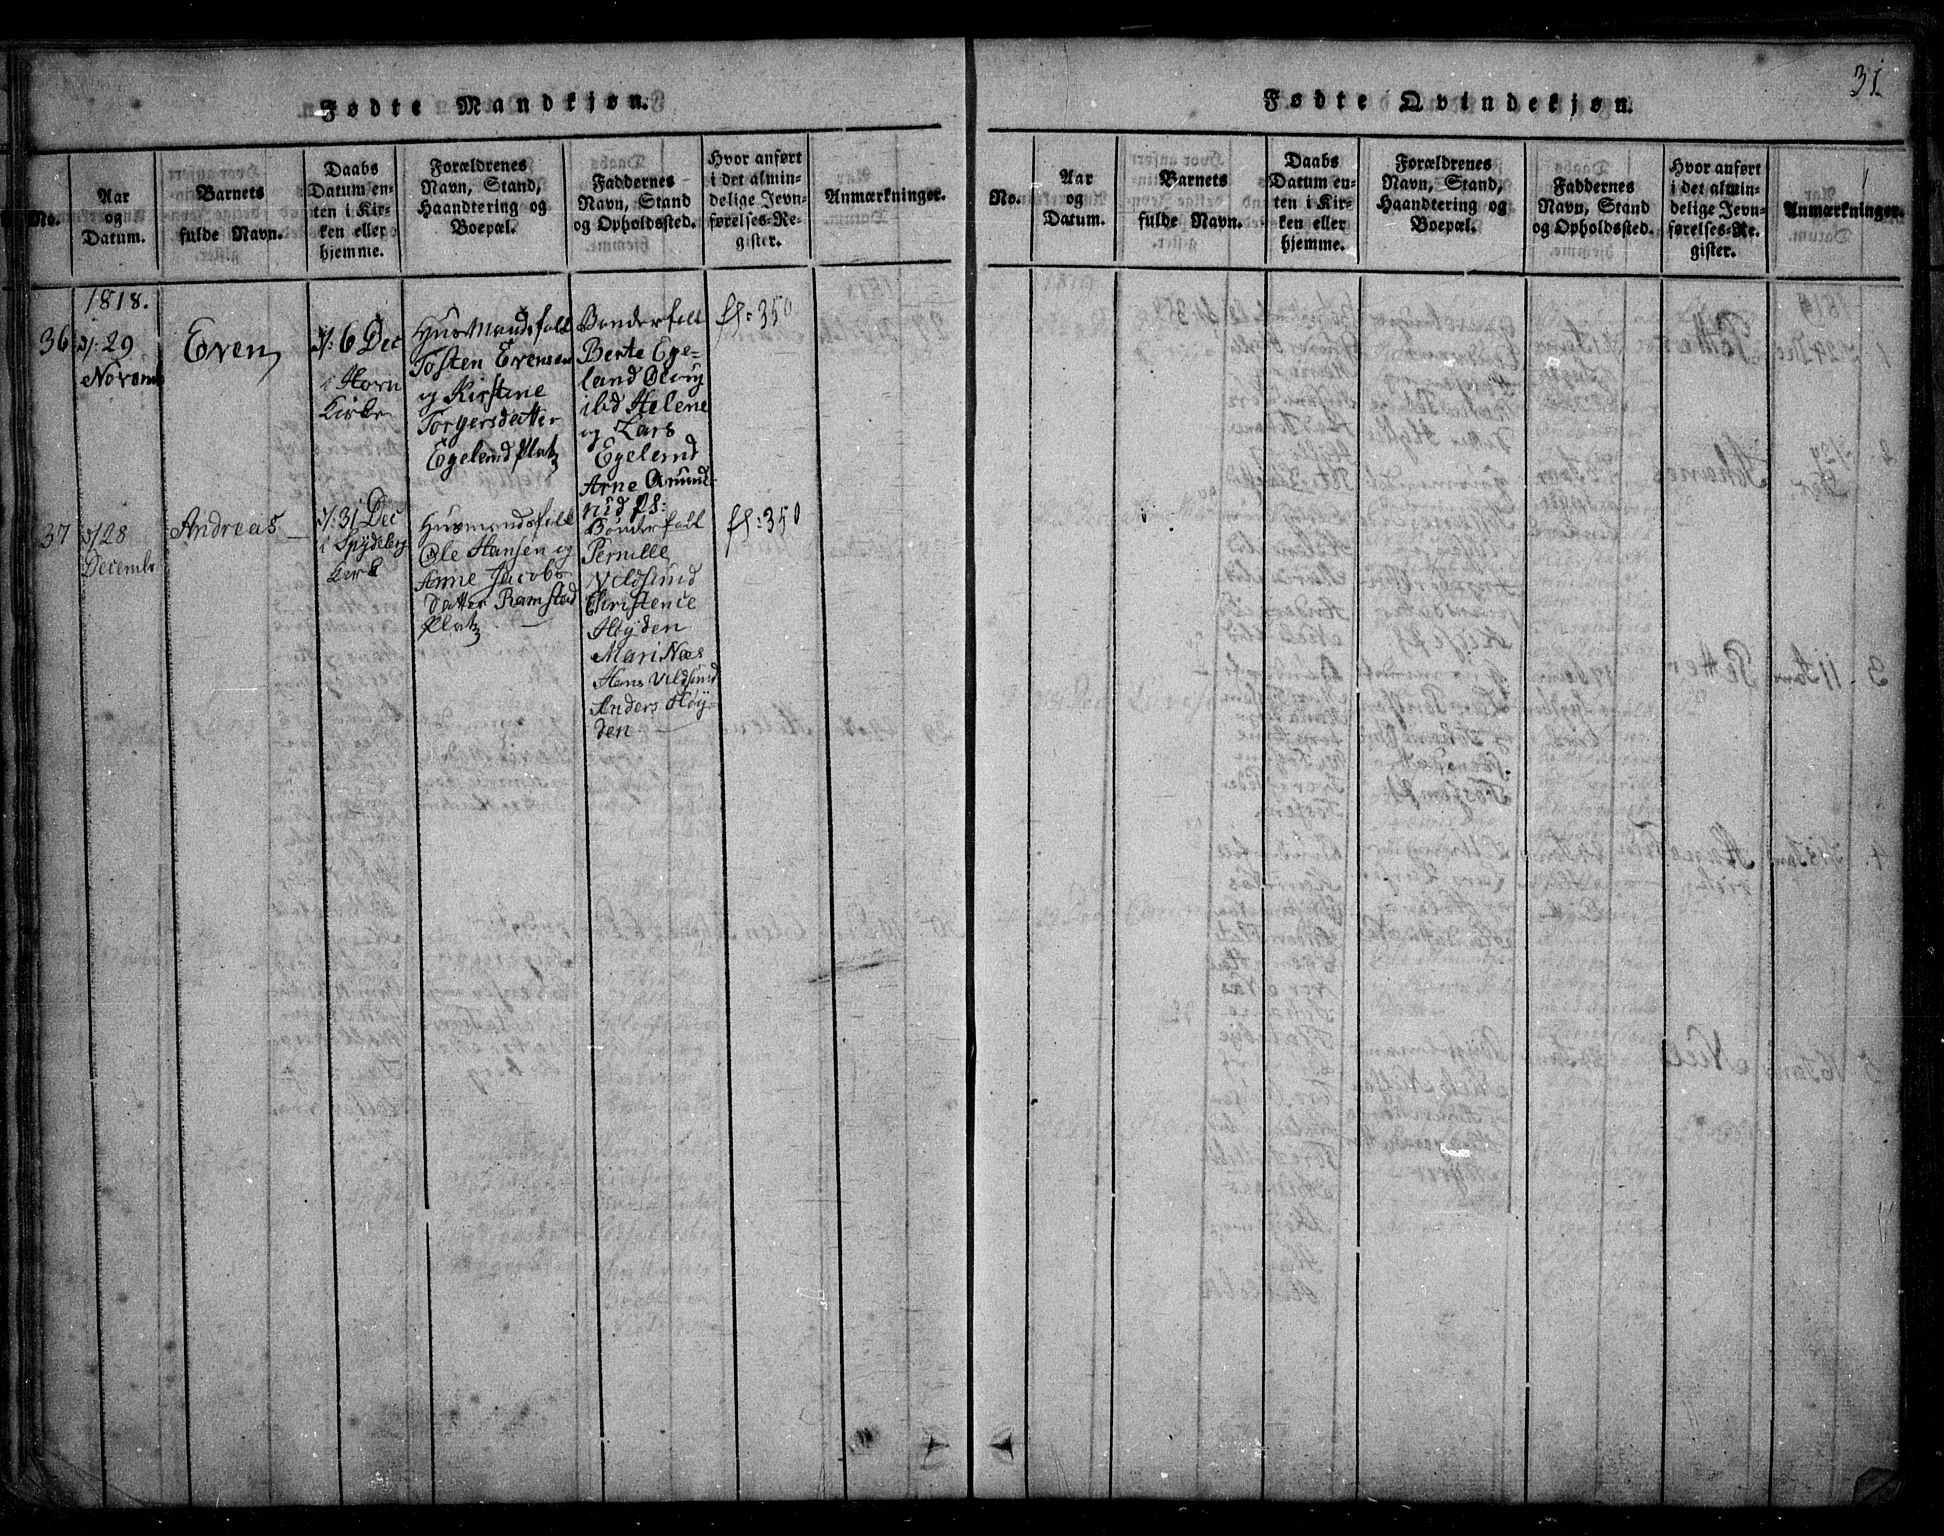 31
Fødte Mandkjøn.
No.
Aar
og
Datum.
Barnets
fulde Navn.
Daabs
Datum en-
ten i Kir-
ken eller
hjemme.
Forældrenes
Navn, Stand,
Haandtering og
Boepæl.
Faddernes
Navn, Stand
og Opholdssted.
Hvor anført
i det almin-
delige Jevn-
førelses-Re-
gister.
Anmærkninger.
1818.
36
29
Novemb
Even
6 Dec
i Hovn
Kirke
Husmandsfolk
Tosten Evensen
og Kirstine
Torgersdatter
Egelund Platz
Bønderfolk
Berte Ege-
land
ibid Helene
og Lars
Egelund
Arne Amund-
rud
fl: 350
37
28
Decembr
Andreas
31 Dec
i Spydeberg
Kirk
Husmandsfolk
Ole Hansen og
Anne Jacobs
datter Ramstad
Platz
Bønderfolk
Pernille
Vildsund
Christence
Høyden
Mari Næs
Hans Vildsund
Anders Høy-
den
fl: 350
Fødte Qvindekjøn.
No.
Aar
og
Datum.
Barnets
fulde Navn.
Daabs
Datum en-
ten i Kir-
ken eller
hjemme.
Forældrenes
Navn, Stand,
Haandtering og
Boepæl.
Faddernes
Navn, Stand
og Opholdssted.
Hvor anført
i det almin-
delige Jevn-
førelses-Re-
gister.
Anmærkninger.